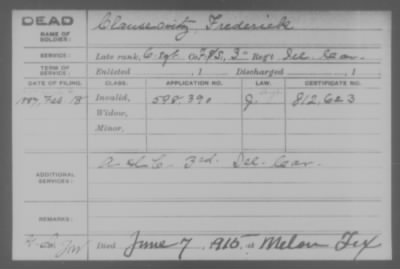 DEAD
NAME OF SOLDIER: Clausewitz, Frederick
SERVICE: Late rank, C. Sgt Co. F & S, 3" Regt Del. Cav.
TERM OF SERVICE: Enlisted , 1 Discharged , 1
DATE OF FILING. CLASS. APPLICATION NO. LAW. CERTIFICATE NO.
1887, Feb 18 Invalid, 598.390 J. 812.623
Widow,
Minor,
ADDITIONAL SERVICES: A & C 3rd. Del. Cav.
REMARKS:
Died June 7, 1915, at Tex